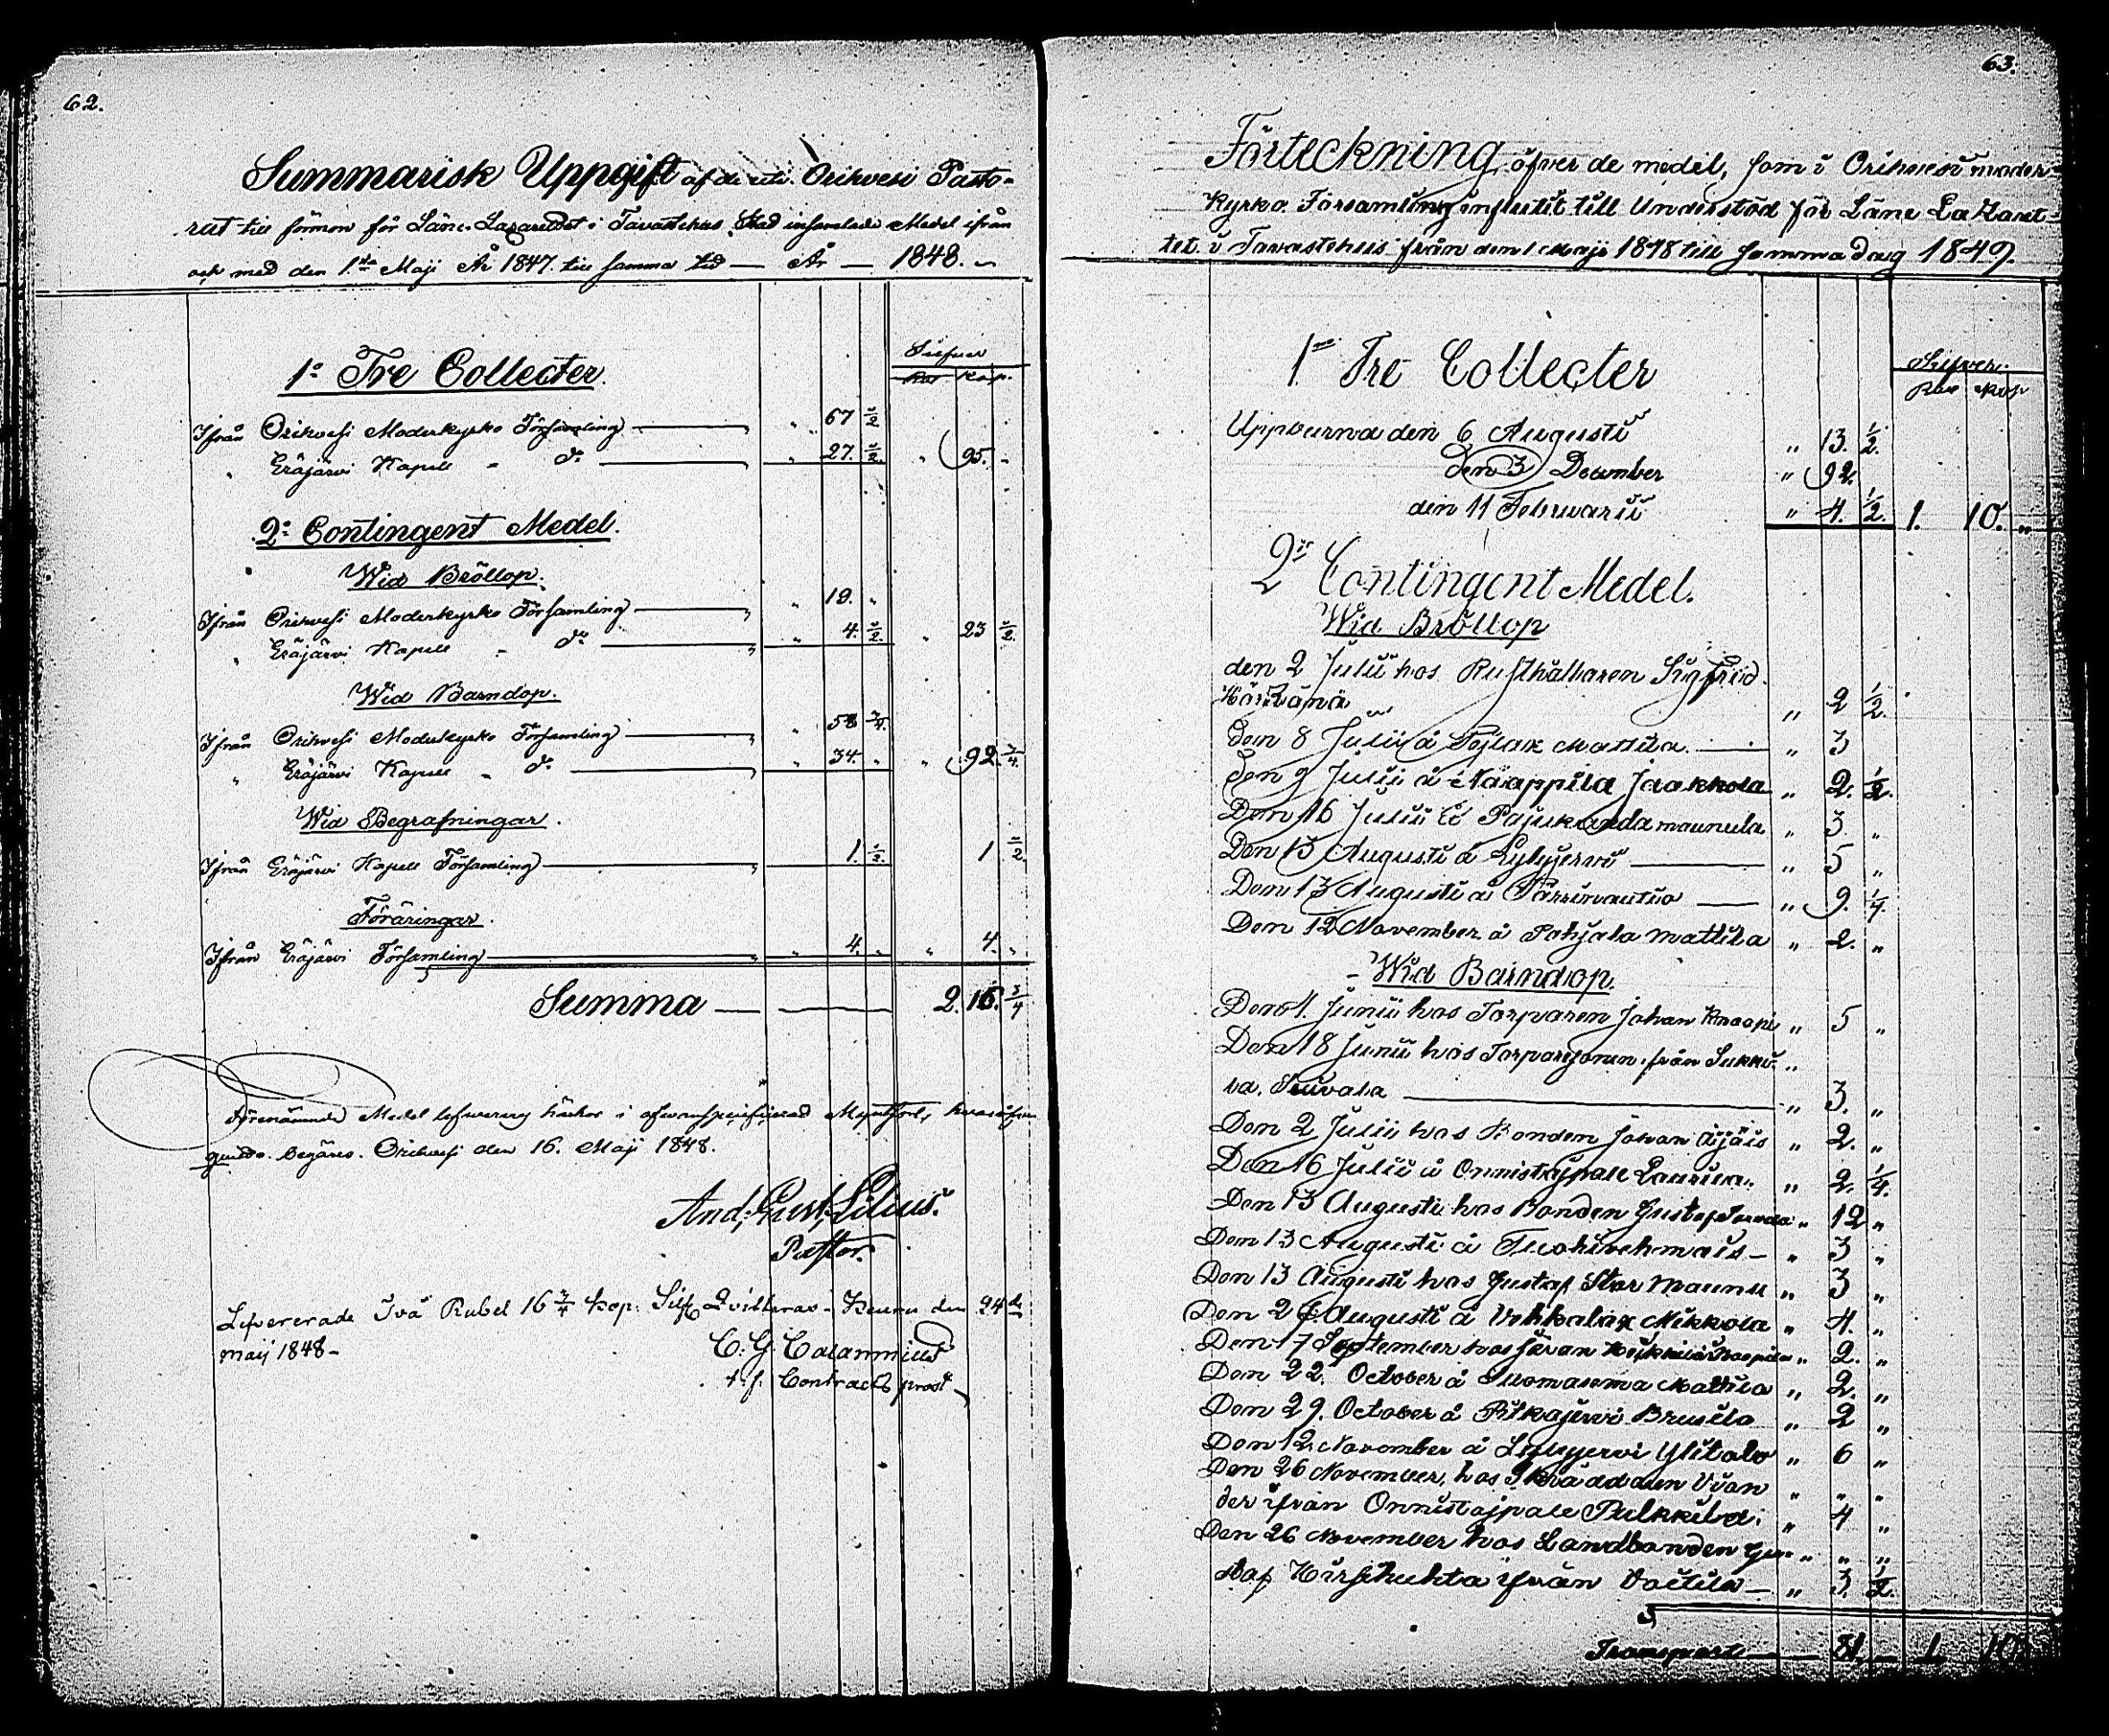 62.
Summarisk Uppgift af de uti Orihvesi Pasto-
rat till förmon för Läne Lazarettet i Tavastehus Stad insamlade Medel ifrån
och med den 1sta Maji År 1847. till samma tid — År — 1848. —
Silfver
Rub Kop.
1o Tre Collecter.
Ifrån Orihvesi Moderkyrko Församling — „ 67 1/2
„ Eräjärvi Kapell - do — „ 27. 1/2. „ 95. -
2o Contingent Medel.
Wid Bröllop.
Ifrån Orihvesi Moderkyrko Församling — „ 19. „
„ Eräjärvi Kapell - do — „ 4. 1/2. „ 23 1/2.
Wid Barndop.
Ifrån Orihvesi Moderkyrko Församling — „ 58 3/4.
„ Eräjärvi Kapell - do — „ 34. „ „ 92. 3/4
Wid Begrafningar.
Ifrån Eräjärvi Kapell Församling — 1. 1/2. 1 1/2.
Föräringar.
Ifrån Eräjärvi Församling — „ 4. „ „ 4. „
Summa — 2. 16. 3/4
Förenämnde Medel
begäres. Orihvesi den 16. Maji 1848.
And. Gust. Lilius.
Pastor.
Lefvererade Två Rubel 16 3/4 Kop. Silf. Qvitteras - Keuru den 24de
maij 1848 -
C: G: Calamnius
t. f. Contracts prost
63.
Förteckning öfver de medel, som i Orihvesi moder-
Kyrko Församling influtit till Understöd för Läne Lazaret-
tet i Tavastehus från den 1 Maji 1848 till samma dag 1849
Silfver.
Rub Kop
1mo Tre Collecter
Uppburna den 6 Augusti „ 13. 1/2.
den 3 December „ 92.
den 11 Februarii „ 4. 1/2. 1. 10. „
2o Contingent Medel.
Wid Bröllop
den 2 Julii hos Rusthållaren Sigfrid
„ 2 1/2.
Den 8 Julii å Mattila. — „ 3
Den 9 Julii å Naappila Jaakkola „ 2. 1/2.
Den 16 Julii å Maunula „ 3. „
Den 13 Augusti å Lylyjervi — „ 5 „
Den 13 Augusti å — „ 9. 1/4.
Den 12 November å Pohjala Mattila „ 2. „
- Wid Barndop.
Den 1. Junii hos Torparen Johan Knaapi „ 5 „
Den 18 Junii hos Torparsonen från Sukki- „
la. — „ 3. „
Den 2 Julii hos Bonden Johan Äijäis „ 2. „
Den 16 Julii å Onnistajpale Laurila. „ 2. 1/4.
Den 13 Augusti hos Bonden Gustaf „ 12 „
Den 13 Augusti å Tuohivehmais - „ 3 „
Den 13 Augusti hos Gustaf Stor Maunu „ 3 „
Den Augusti å Vehkalax Mikkola „ 4. „
Den 17 September hos „ 2. „
Den 22. October å Suomasema Mattila „ 2. „
Den 29. October å Pitkäjervi Brusila „ 2 „
Den 12. November å Lylyjervi Ylitalo „ 6 „
Den 26 November, hos Skräddaren Vivan „ „ „
der ifrån Onnistajpale Pulkkila: „ 4 „
Den 26 November hos Landbonden Gu- „ „ „
staf Hirsikuhta ifrån Voitila — „ 3. 1/2.
Transport — 81. — 1. 10